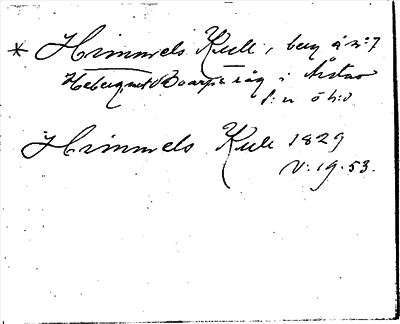 * Himmels Kulle, berg å n:o 7
Heberg mot Boarps råg i Årstad
s:n ö h:d
Himmels Kulle 1829
V. 19. 53.